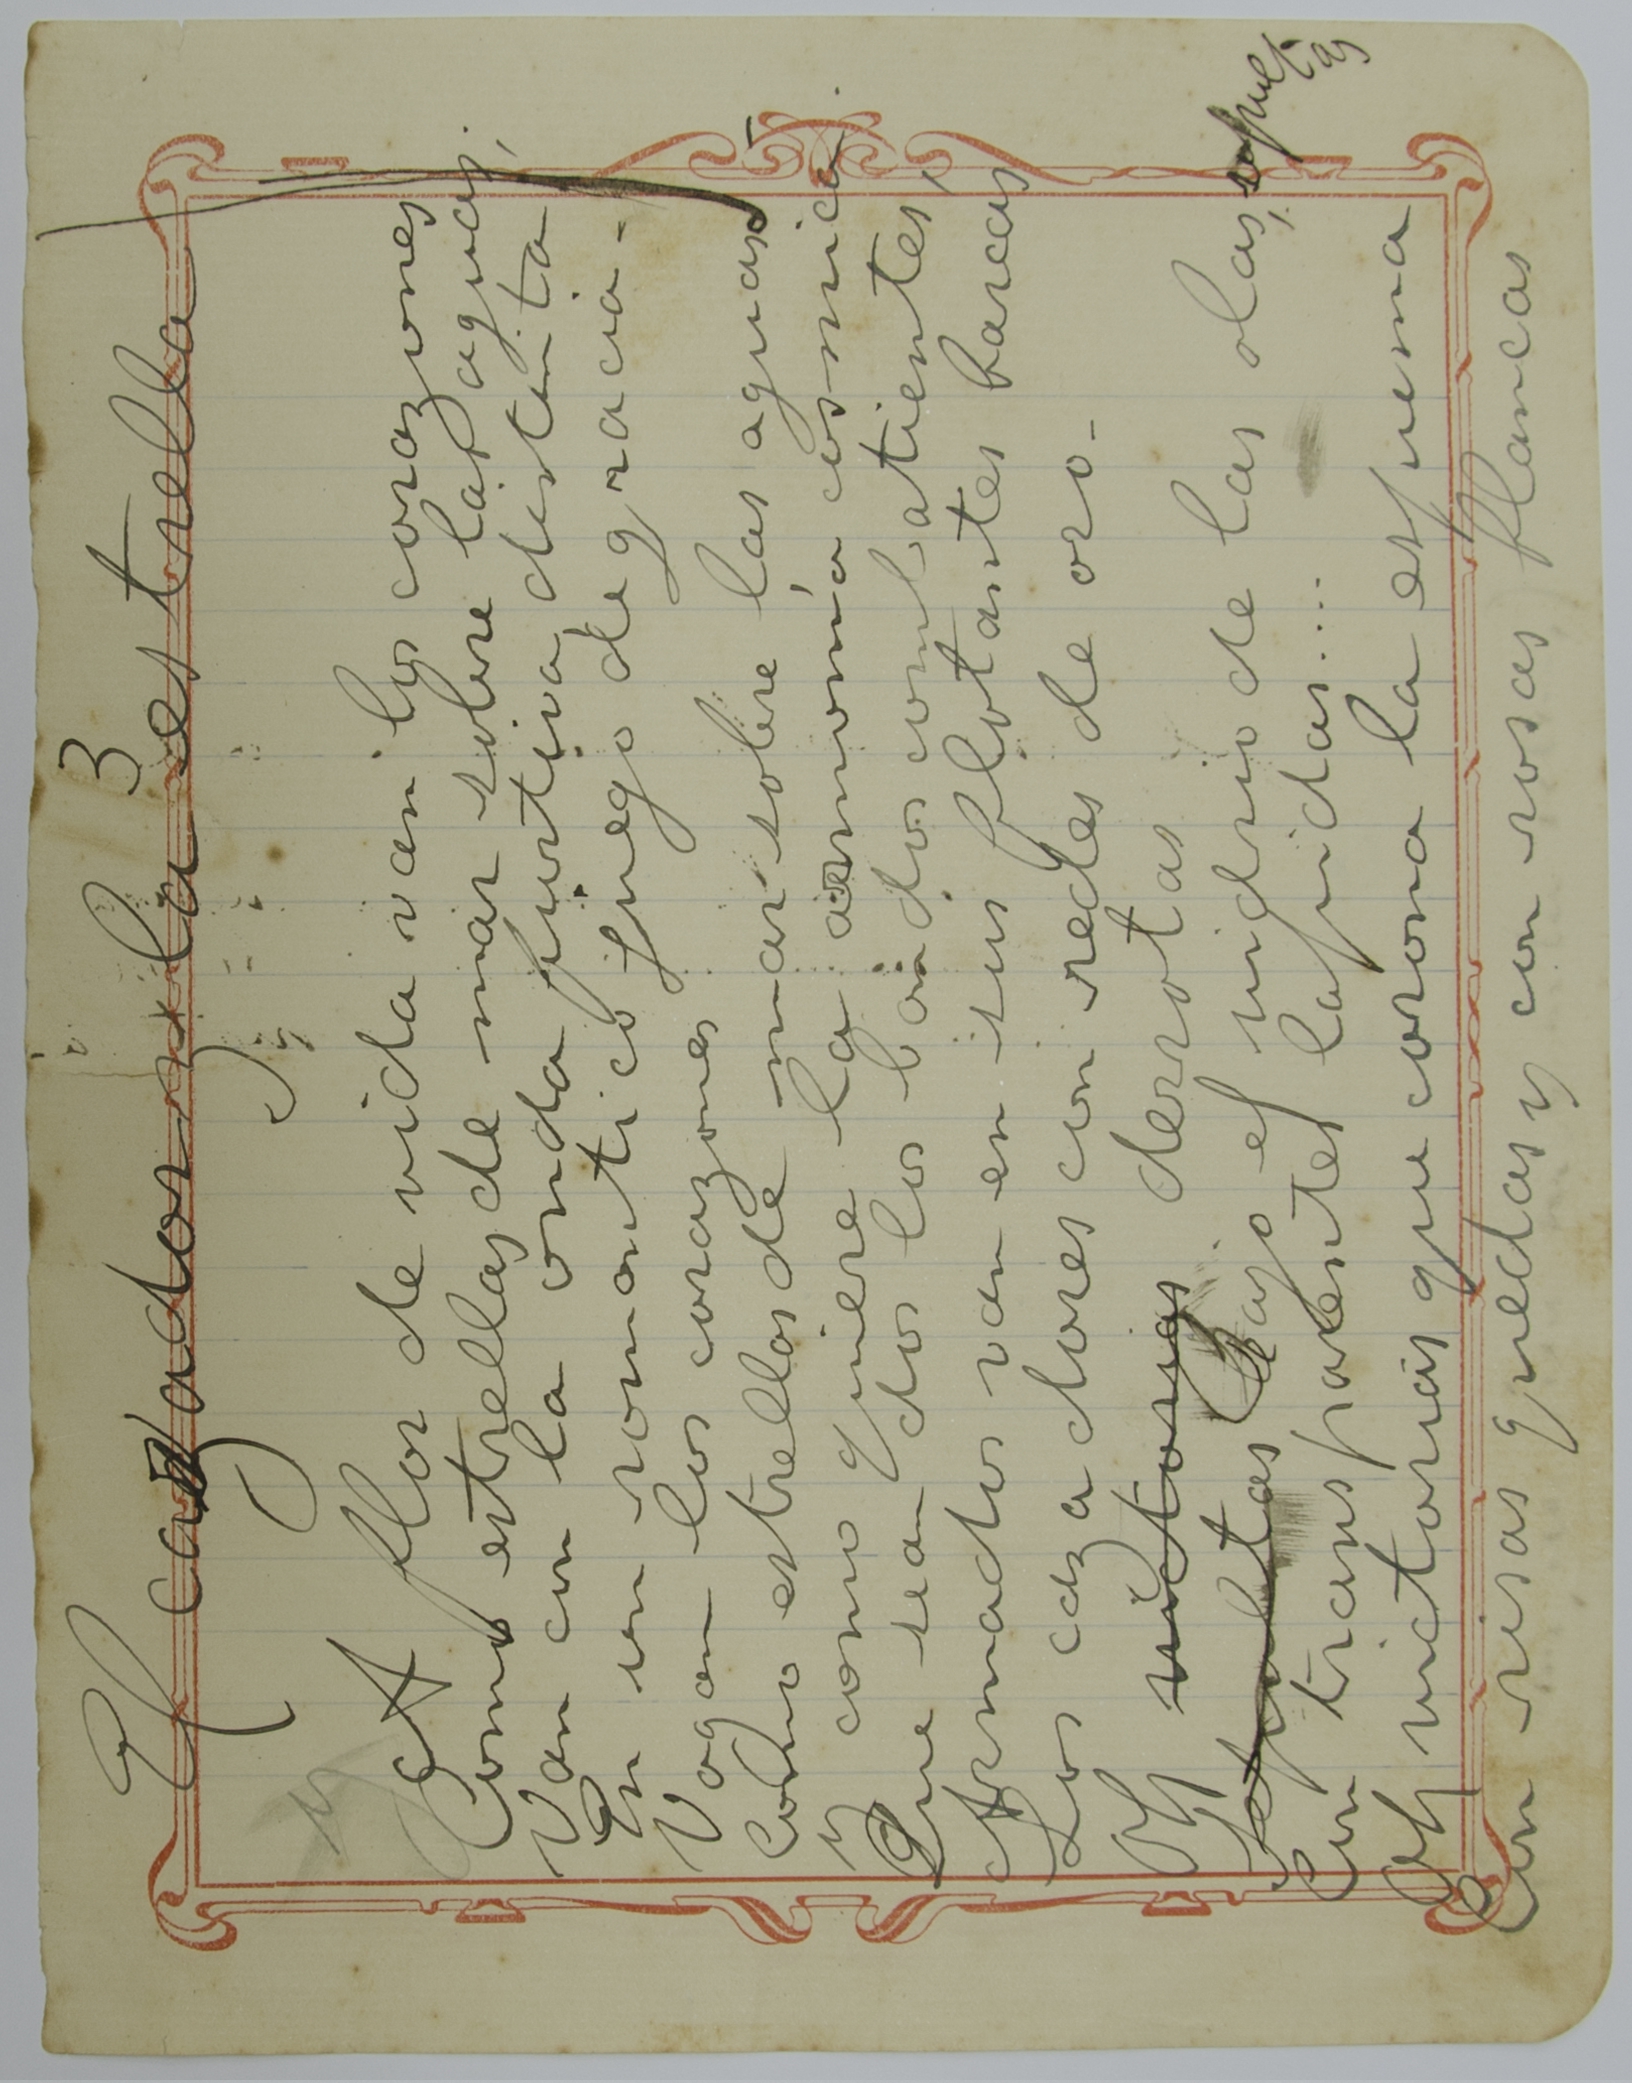 3
El cazador y la estrella
A flor de vida van los corazones
Como estrellas de mar sobre las aguas,
Van con la onda furtiva, distinta
En un romantico juego de gracia.
Vogan los corazones
Como estrellas de mar sobre las aguas
Y como quiere la armonía cosmica
Que sean dos los bandos combatientes,
Armados van en sus flotantes barcas
Los cazadores con redes de oro.
Oh victorias derrotas
Sepultas bajo el vidrio de las olas, sepultas
Con transparentes lapidas...
Oh victorias que corona la espuma
Con risas quedas y con rosas flancas